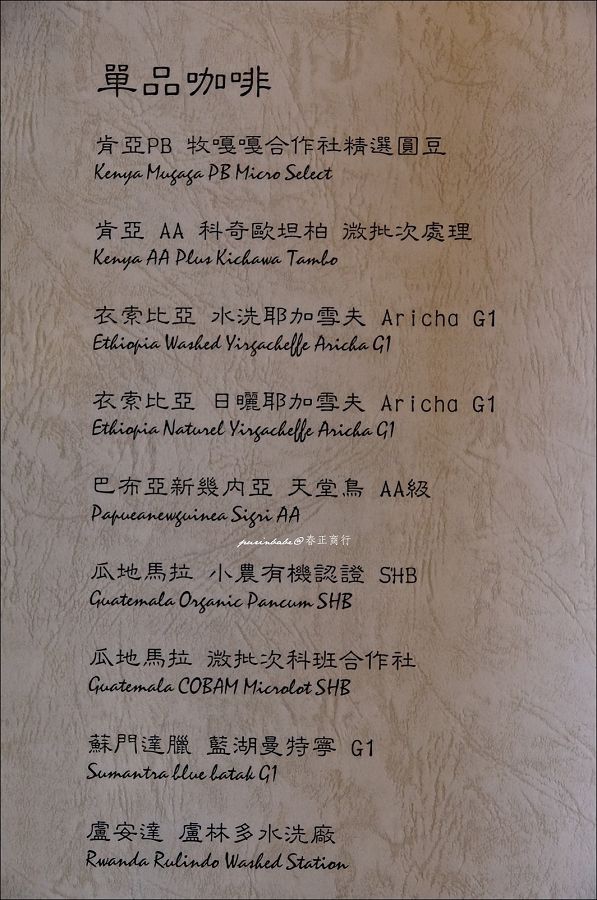 單品咖啡
肯亞PB 牧嘎嘎合作社精選圓豆
Kenya Mugaga PB Micro Select
肯亞 AA 科奇歐坦柏 微批次處理
Kenya AA Plus Kichawa Tambo
衣索比亞 水洗耶加雪夫 Aricha G1
Ethiopia Washed Yirgacheffe Aricha G1
衣索比亞 日曬耶加雪夫 Aricha G1
Ethiopia Naturel Yirgacheffe Aricha G1
巴布亞新幾內亞 天堂鳥 AA級
Papueanewguinea Sigri AA
purinbabe@春正商行
瓜地馬拉 小農有機認證 SHB
Guatemala Organic Pancum SHB
瓜地馬拉 微批次科班合作社
Guatemala COBAM Microlot SHB
蘇門達臘 藍湖曼特寧 G1
Sumantra blue batak G1
盧安達 盧林多水洗廠
Rwanda Rulindo Washed Station